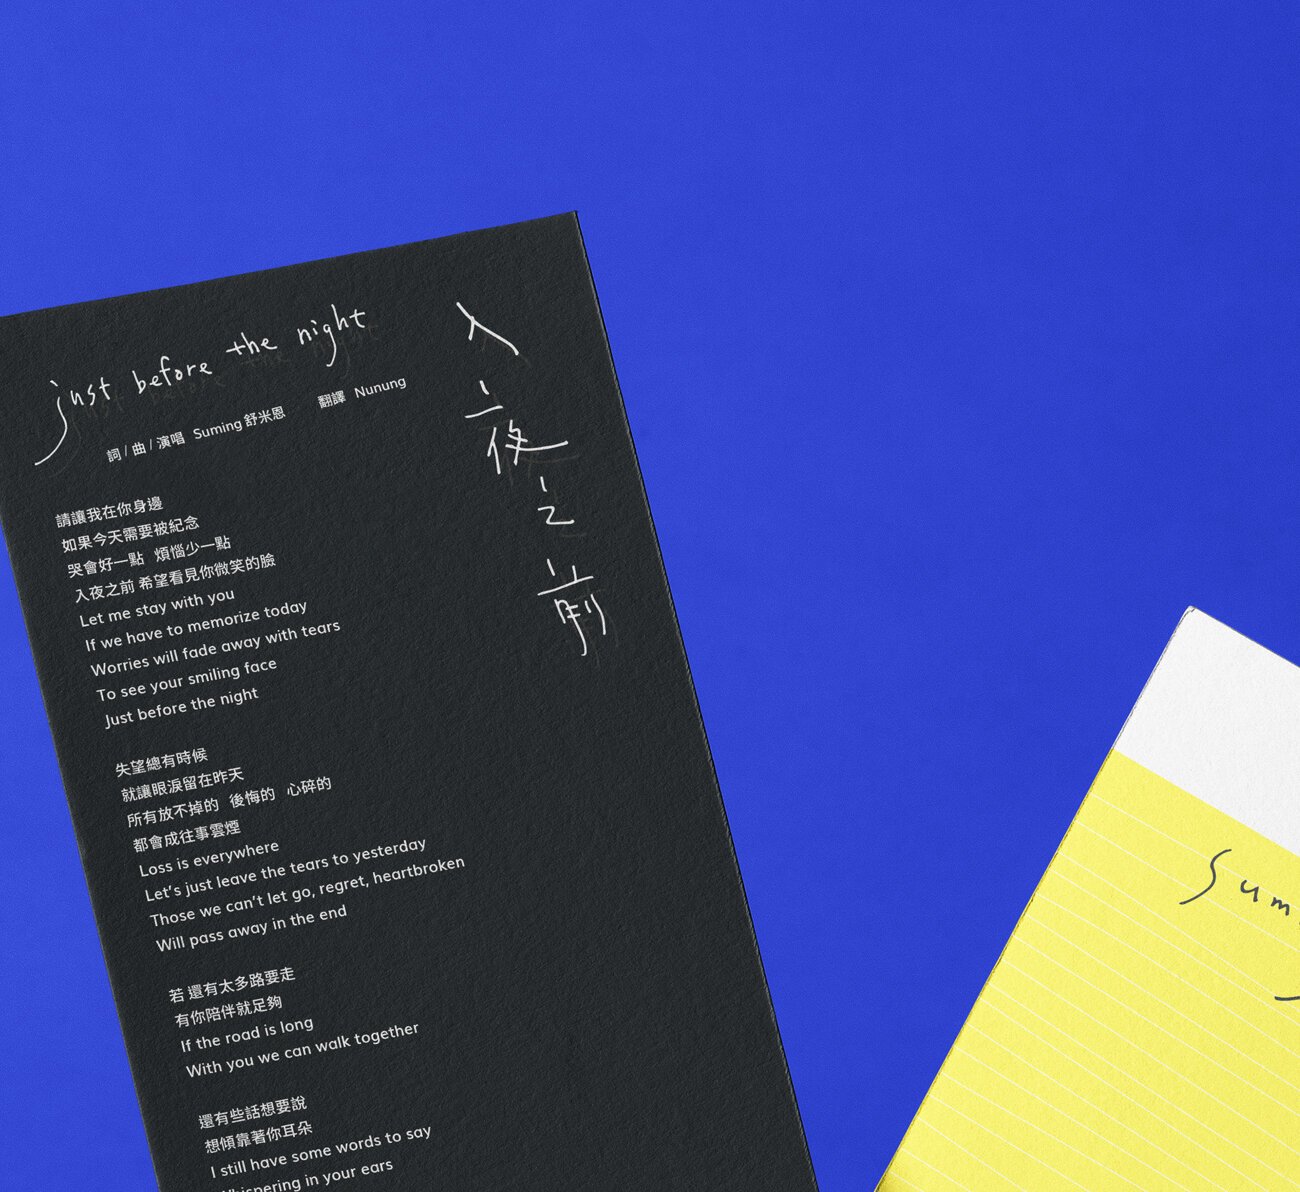 just before the night
詞 / 曲 / 演唱 Suming 舒米恩 翻譯 Nunung
入夜之前
請讓我在你身邊
如果今天需要被紀念
哭會好一點 煩惱少一點
入夜之前 希望看見你微笑的臉
Let me stay with you
If we have to memorize today
Worries will fade away with tears
To see your smiling face
Just before the night
失望總有時候
就讓眼淚留在昨天
所有放不掉的 後悔的 心碎的
都會成往事雲煙
Loss is everywhere
Let's just leave the tears to yesterday
Those we can't let go, regret, heartbroken
Will pass away in the end
若 還有太多路要走
有你陪伴就足夠
If the road is long
With you we can walk together
還有些話想要說
想傾靠著你耳朵
I still have some words to say
Whispering in your ears
Sum